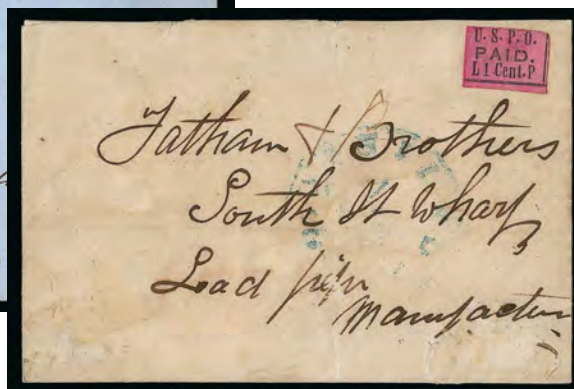 U.S.P.O.
PAID.
L 1 Cent. P
Tatham & Brothers
South St Wharf
Lead pipe
Manufactur